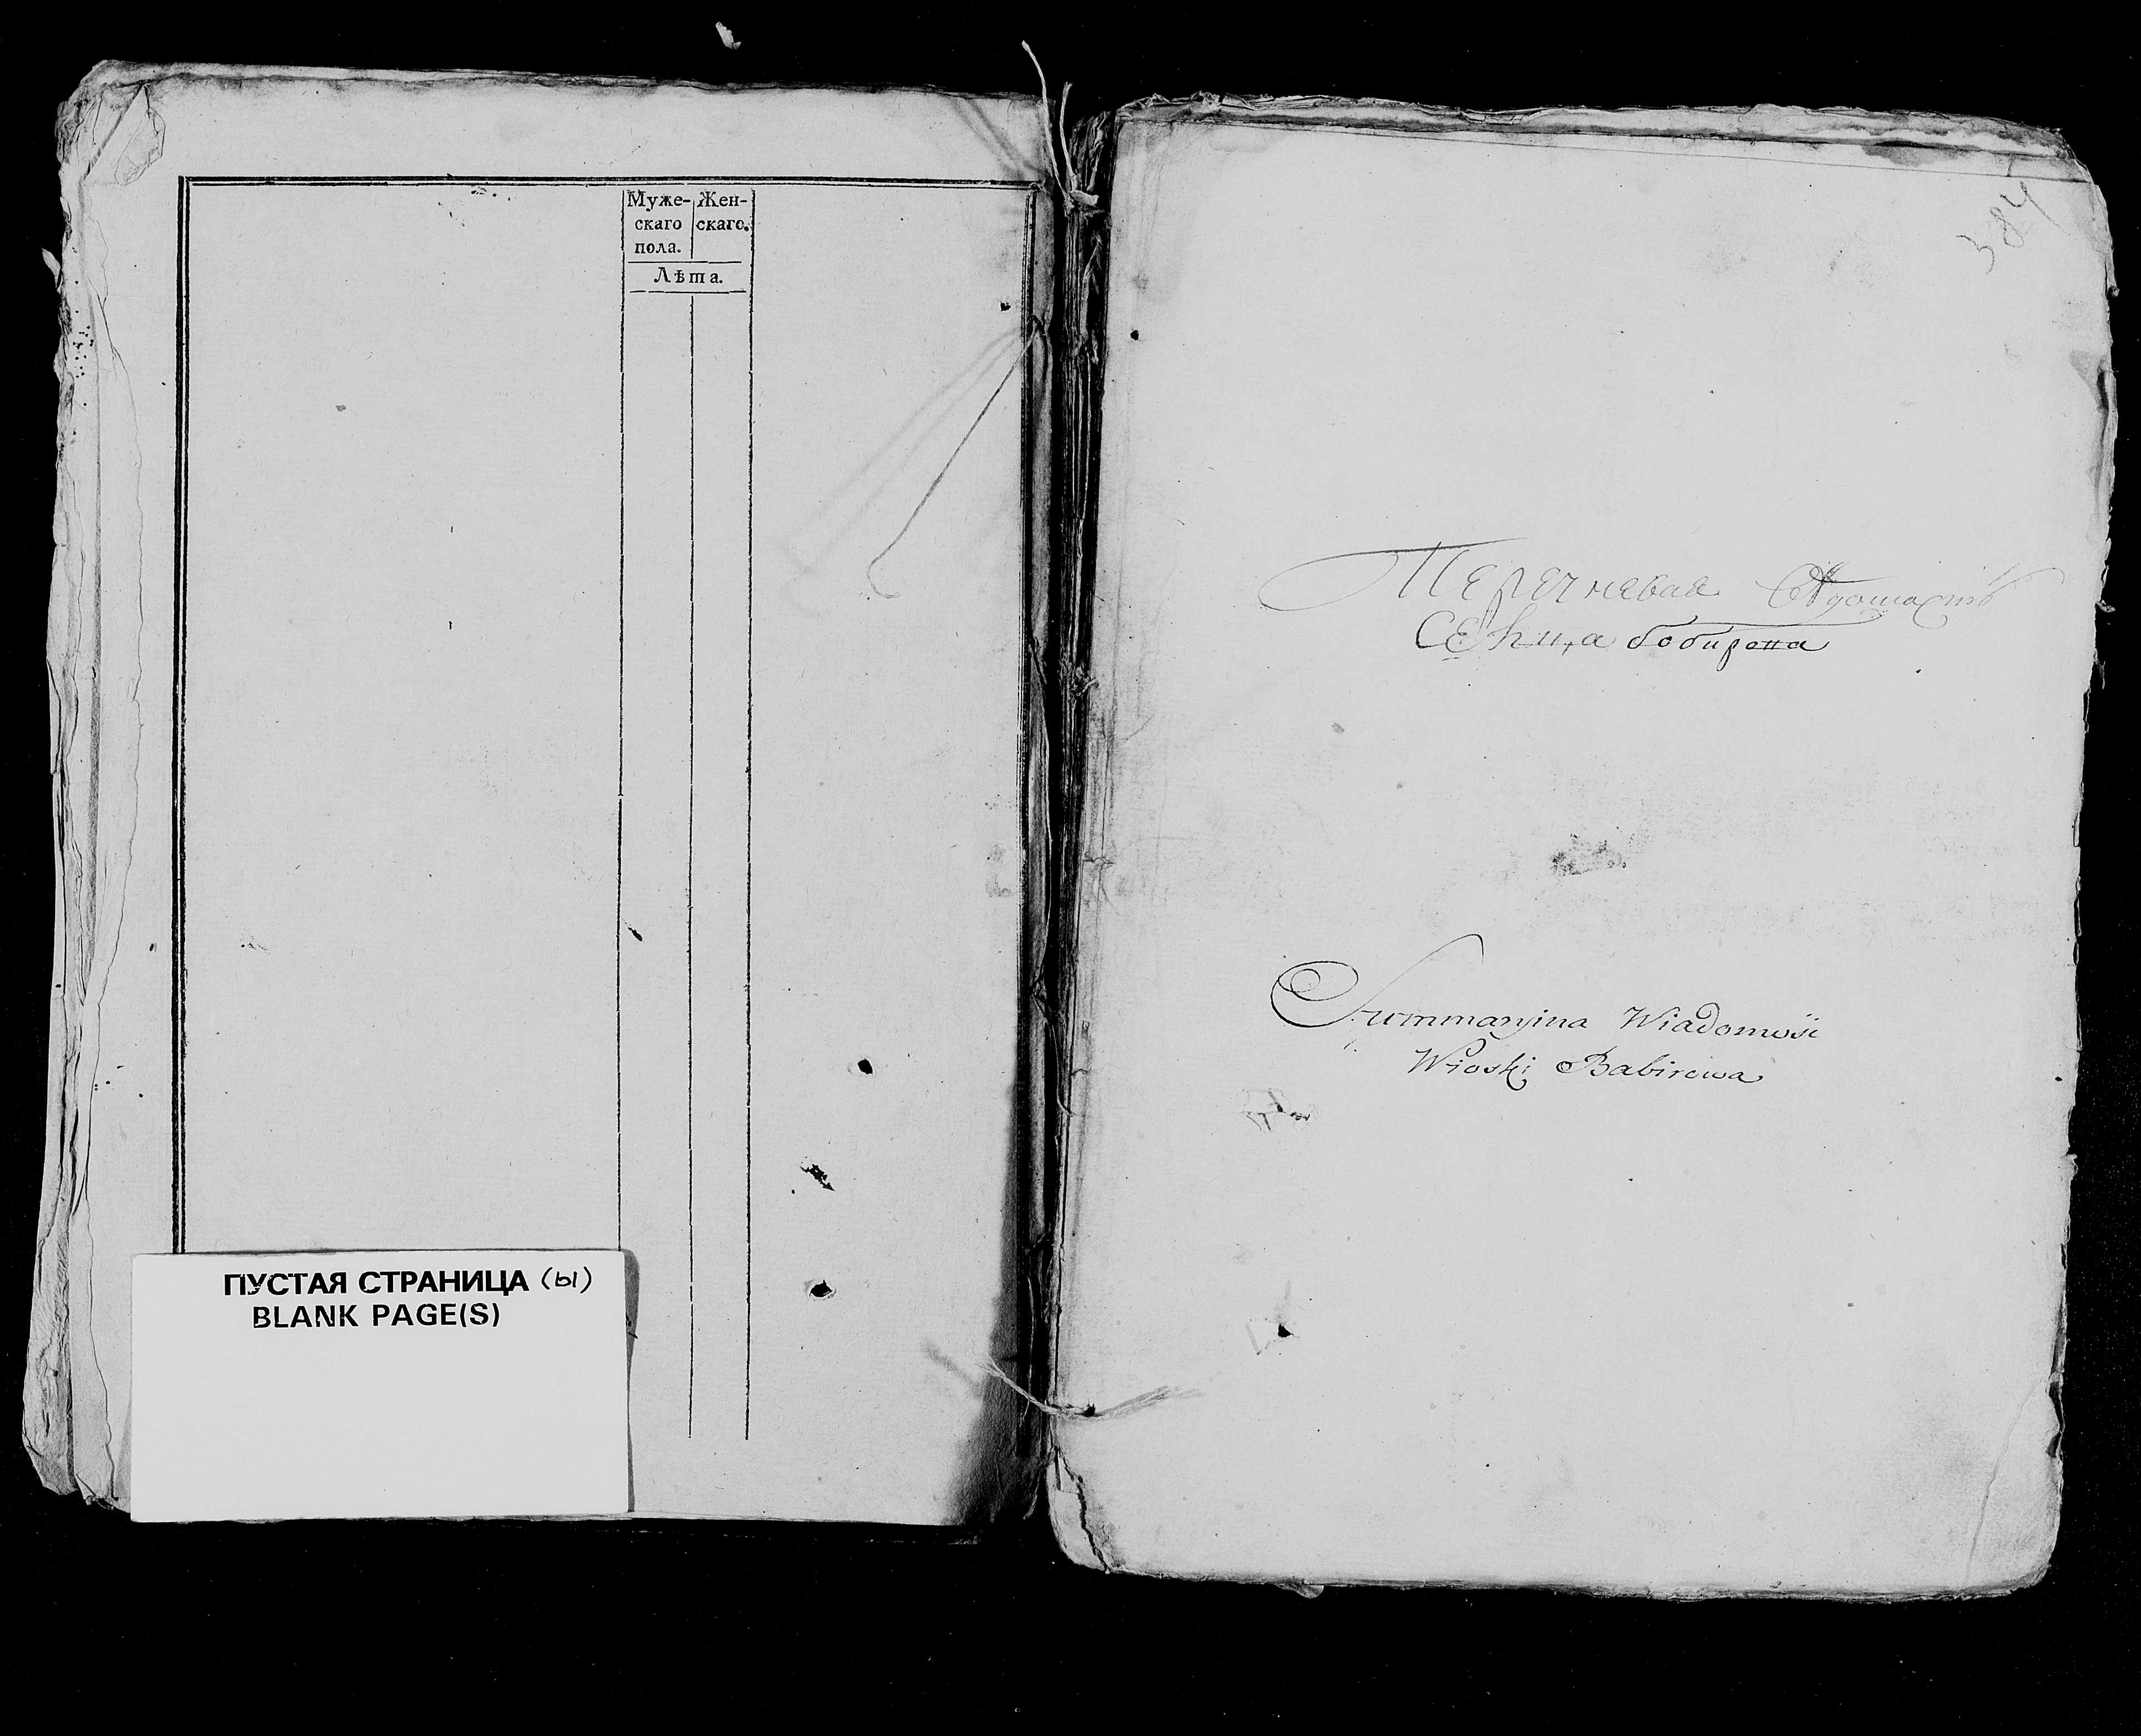 Муже- Жен-
скаго скаго.
пола.
Лѣта.
ПУСТАЯ СТРАНИЦА (ы)
BLANK PAGE(S)
384
Перечневая Вѣдомасть
Сельца бобирова
Summaryina Wiadomość
Wioski Babirowa